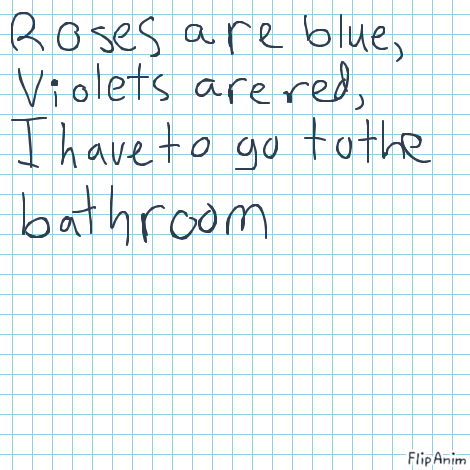 Roses are blue,
Violets are red,
I have to go to the
bathroom
FlipAnim